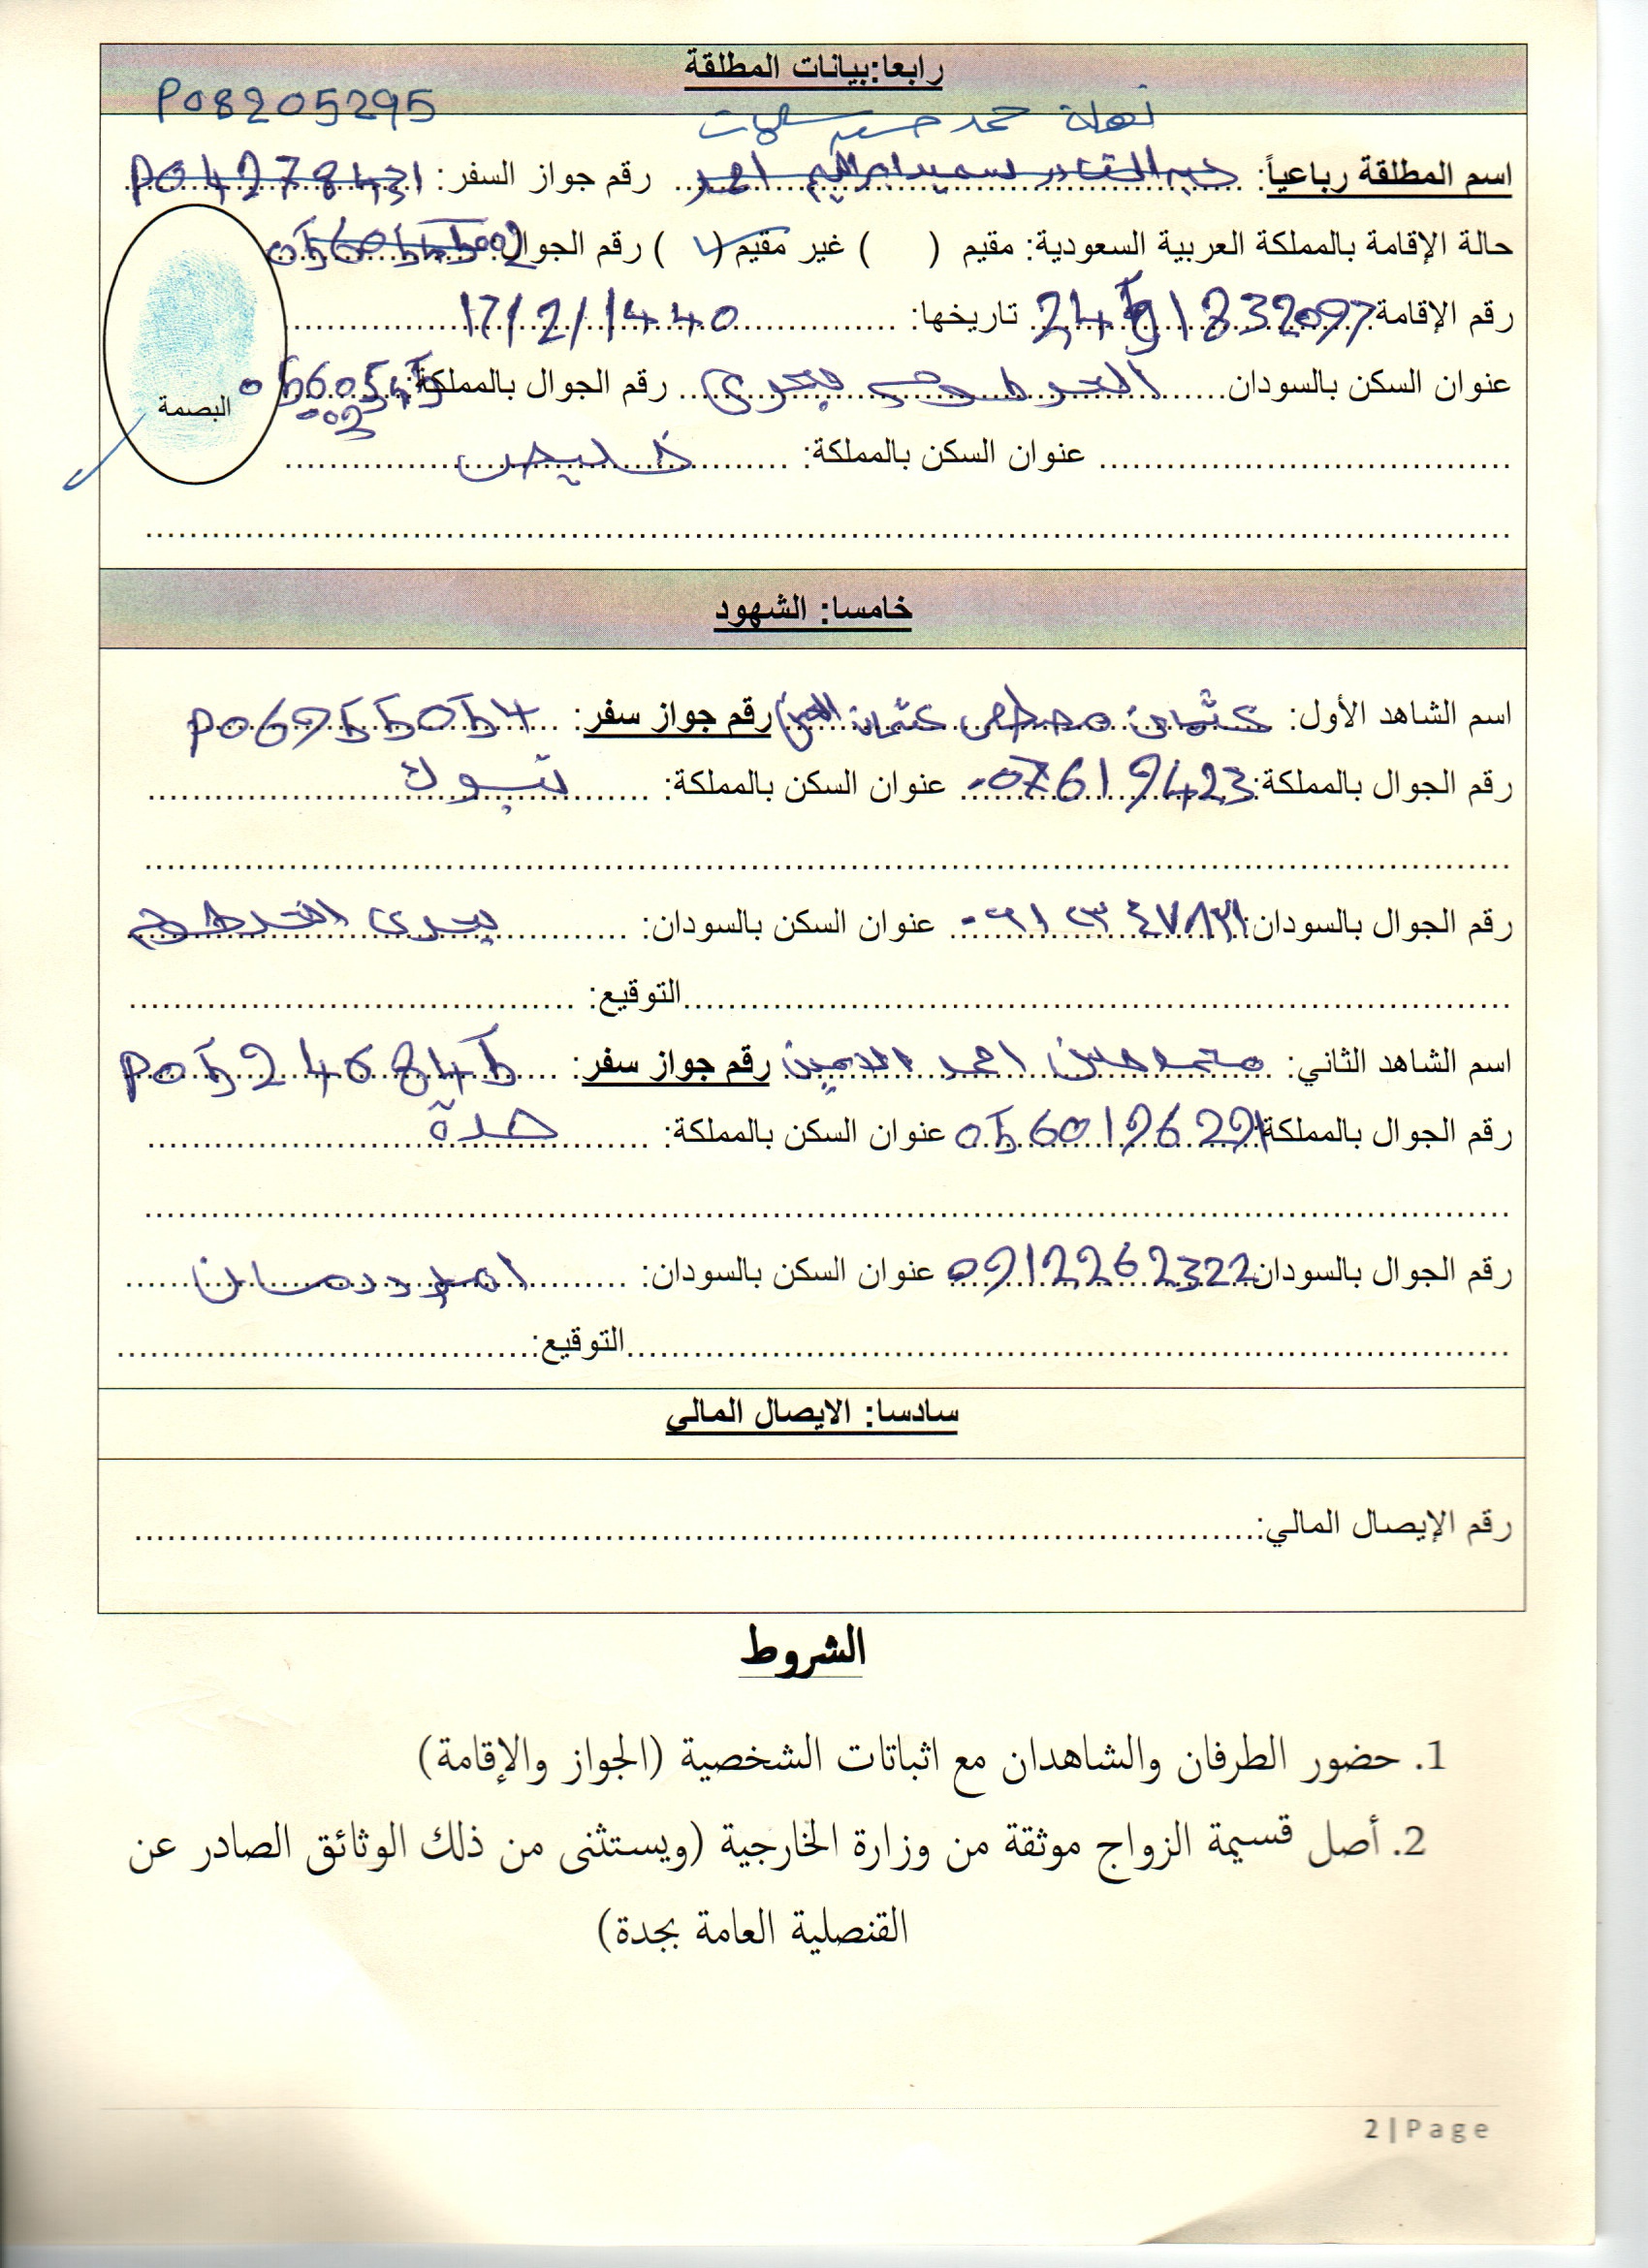 رابعا:بيانات المطلقة
P08205295
نهلة محمد حسين
اسم المطلقة رباعياً: عبدالقادر سميد ابراهيم احمد رقم جواز السفر: P04278431
حالة الإقامة بالمملكة العربية السعودية: مقيم ( ) غير مقيم (✓) رقم الجوال:
رقم الإقامة تاريخها: 17/2/1440
عنوان السكن بالسودان الخرطوم بحرى رقم الجوال بالمملكة:
عنوان السكن بالمملكة: خليص
البصمة
خامسا: الشهود
اسم الشاهد الأول: عثمان مصطفى عثمان رقم جواز سفر: P06955054
رقم الجوال بالمملكة: 0507619423 عنوان السكن بالمملكة: تبوك
رقم الجوال بالسودان: عنوان السكن بالسودان: بحرى الخرطوم
التوقيع:
اسم الشاهد الثاني: محمد حسن احمد الامين رقم جواز سفر: P05246845
رقم الجوال بالمملكة: 0560196221 عنوان السكن بالمملكة: جدة
رقم الجوال بالسودان: 0912262322 عنوان السكن بالسودان: امدرمان
التوقيع:
سادسا: الايصال المالي
رقم الإيصال المالي:
الشروط
1. حضور الطرفان والشاهدان مع اثباتات الشخصية (الجواز والإقامة)
2. أصل قسيمة الزواج موثقة من وزارة الخارجية (ويستثنى من ذلك الوثائق الصادر عن
القنصلية العامة بجدة)
2 | Page